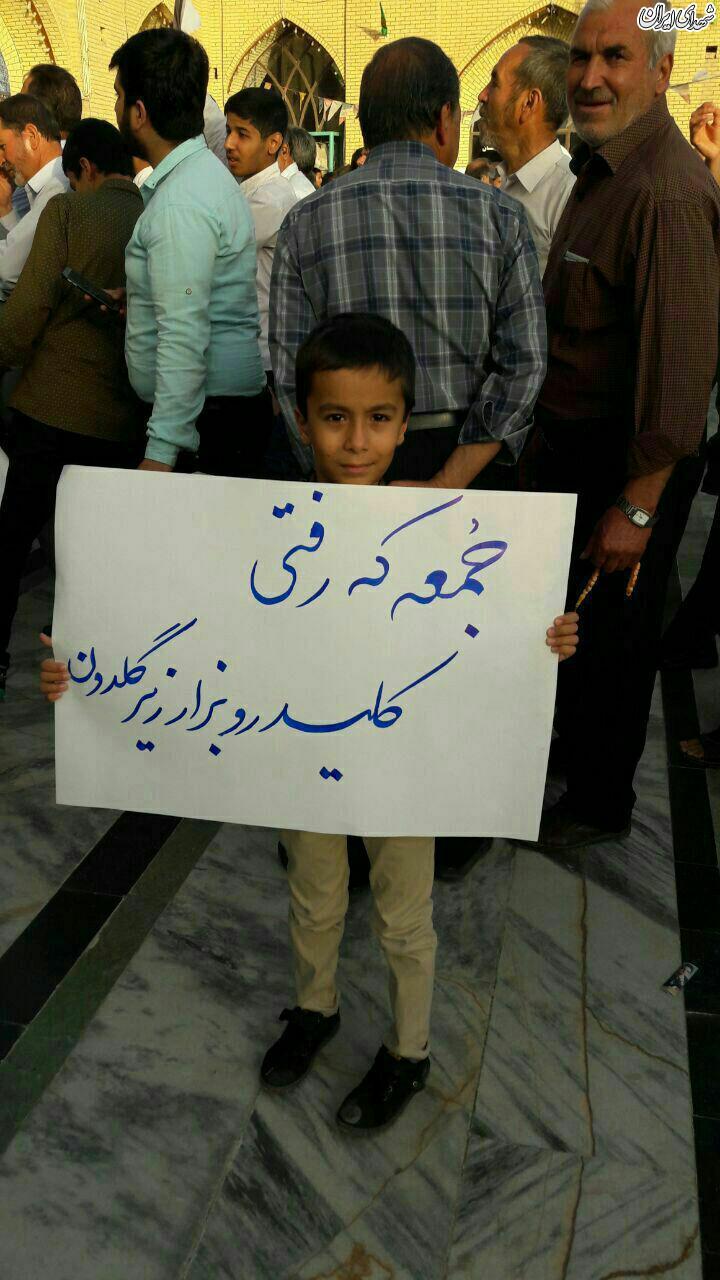 شهدای ایران
جُمعه که رفتی
کلید رو بزار زیر گلدون